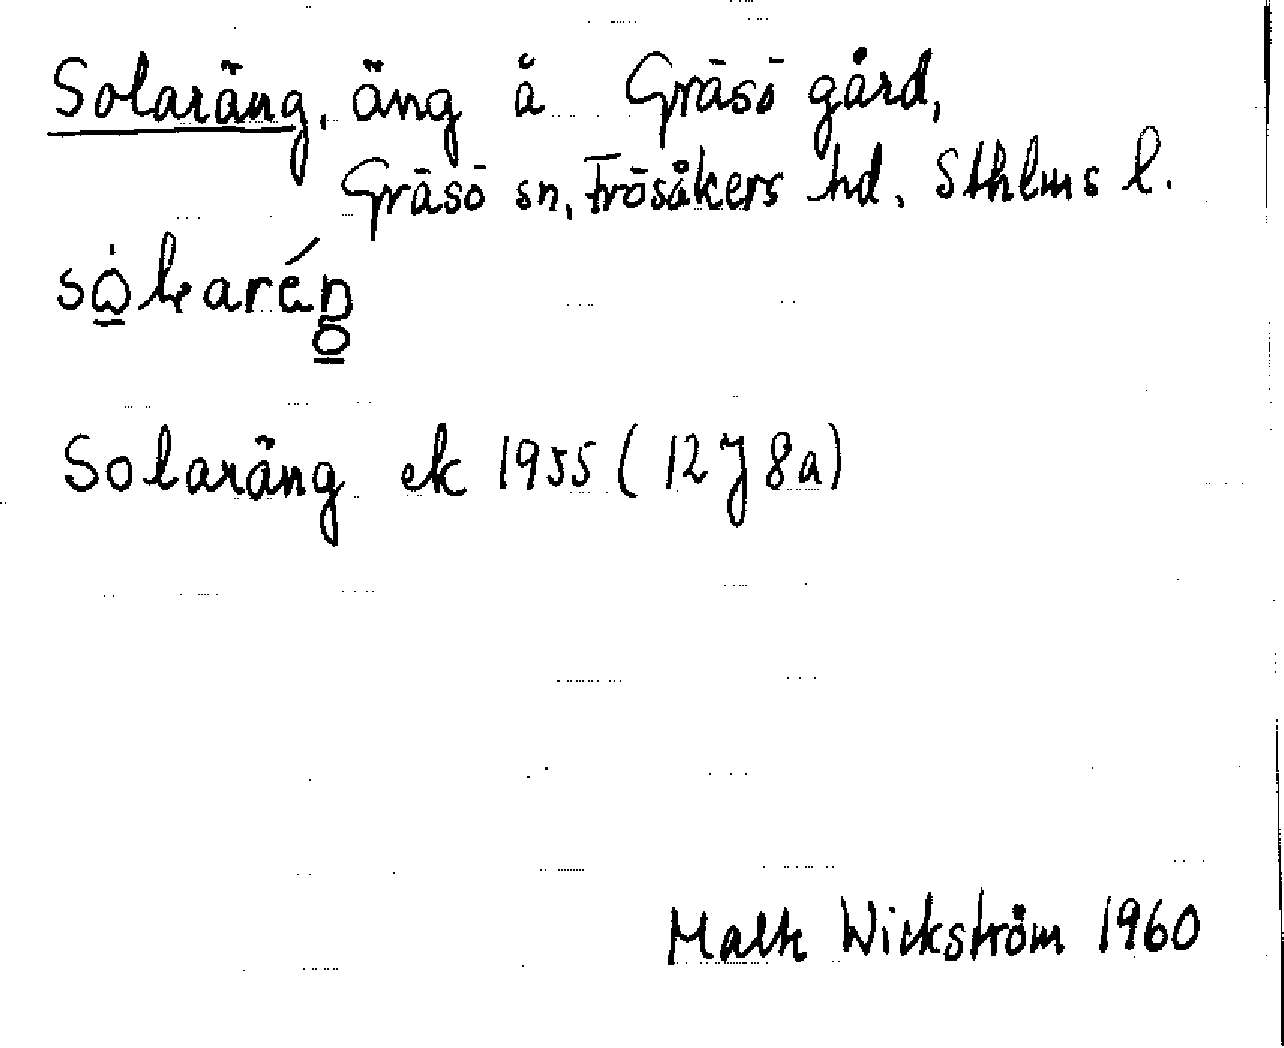 Solaräng, äng å Gräsö gård,
Gräsö sn, Frösåkers hd, Sthlms l.
Solaräng ek 1955 (12J8a)
Wickström 1960